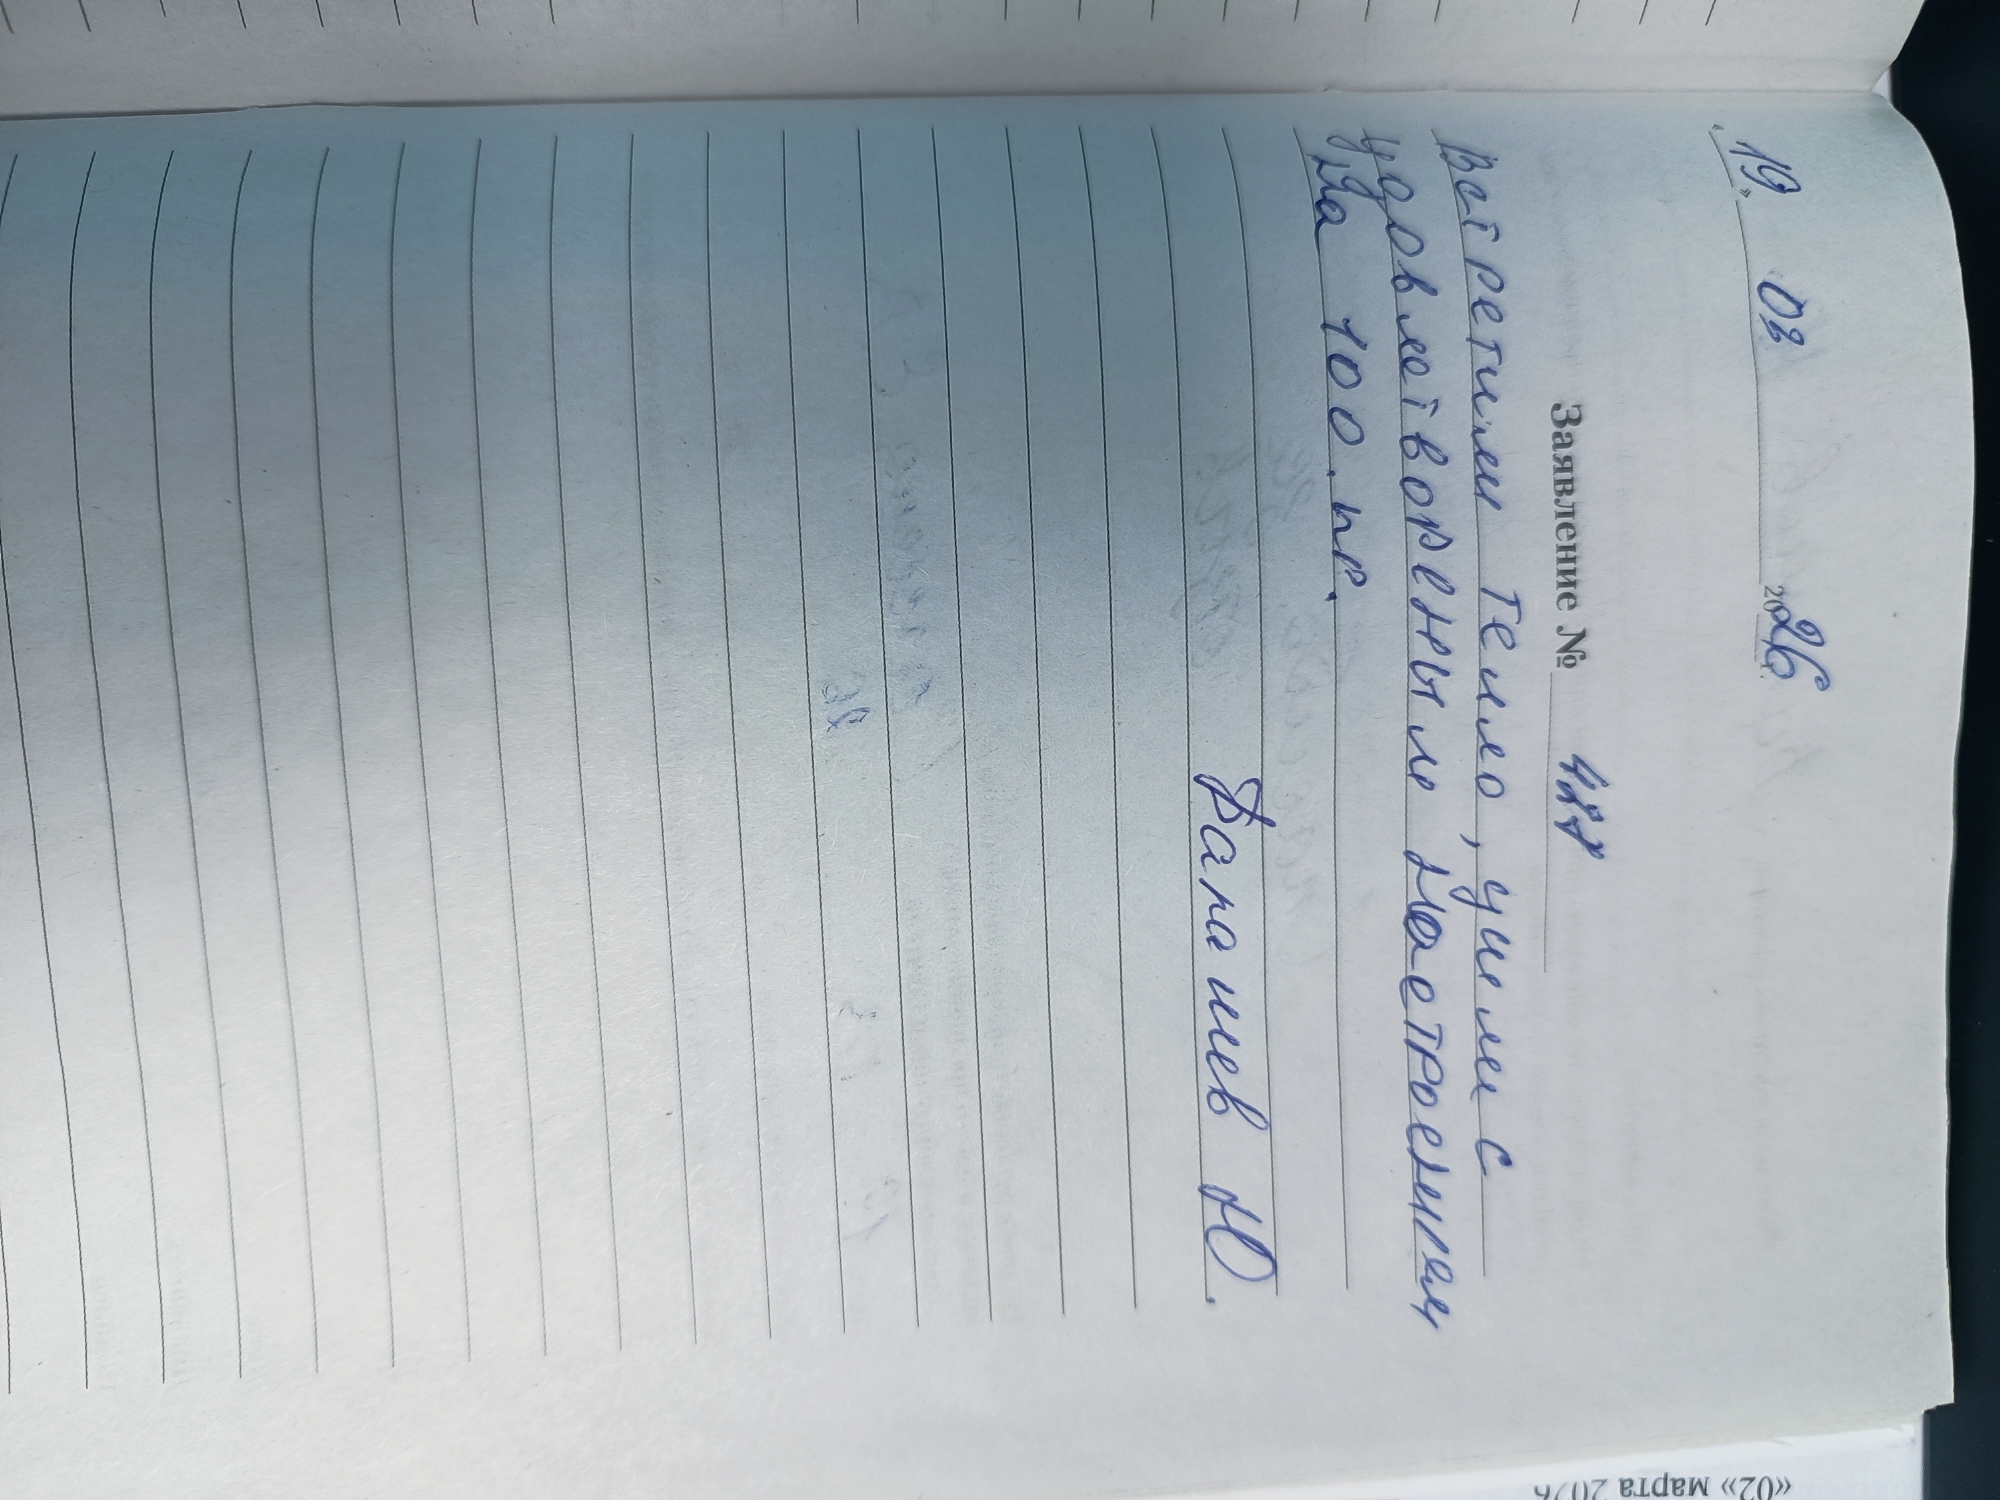 « 19 » 03 2026
Заявление №
Встретили тепло, ушли с
удовлетворенным настроением,
На 100. пр.
Ю.
«02» марта 2026